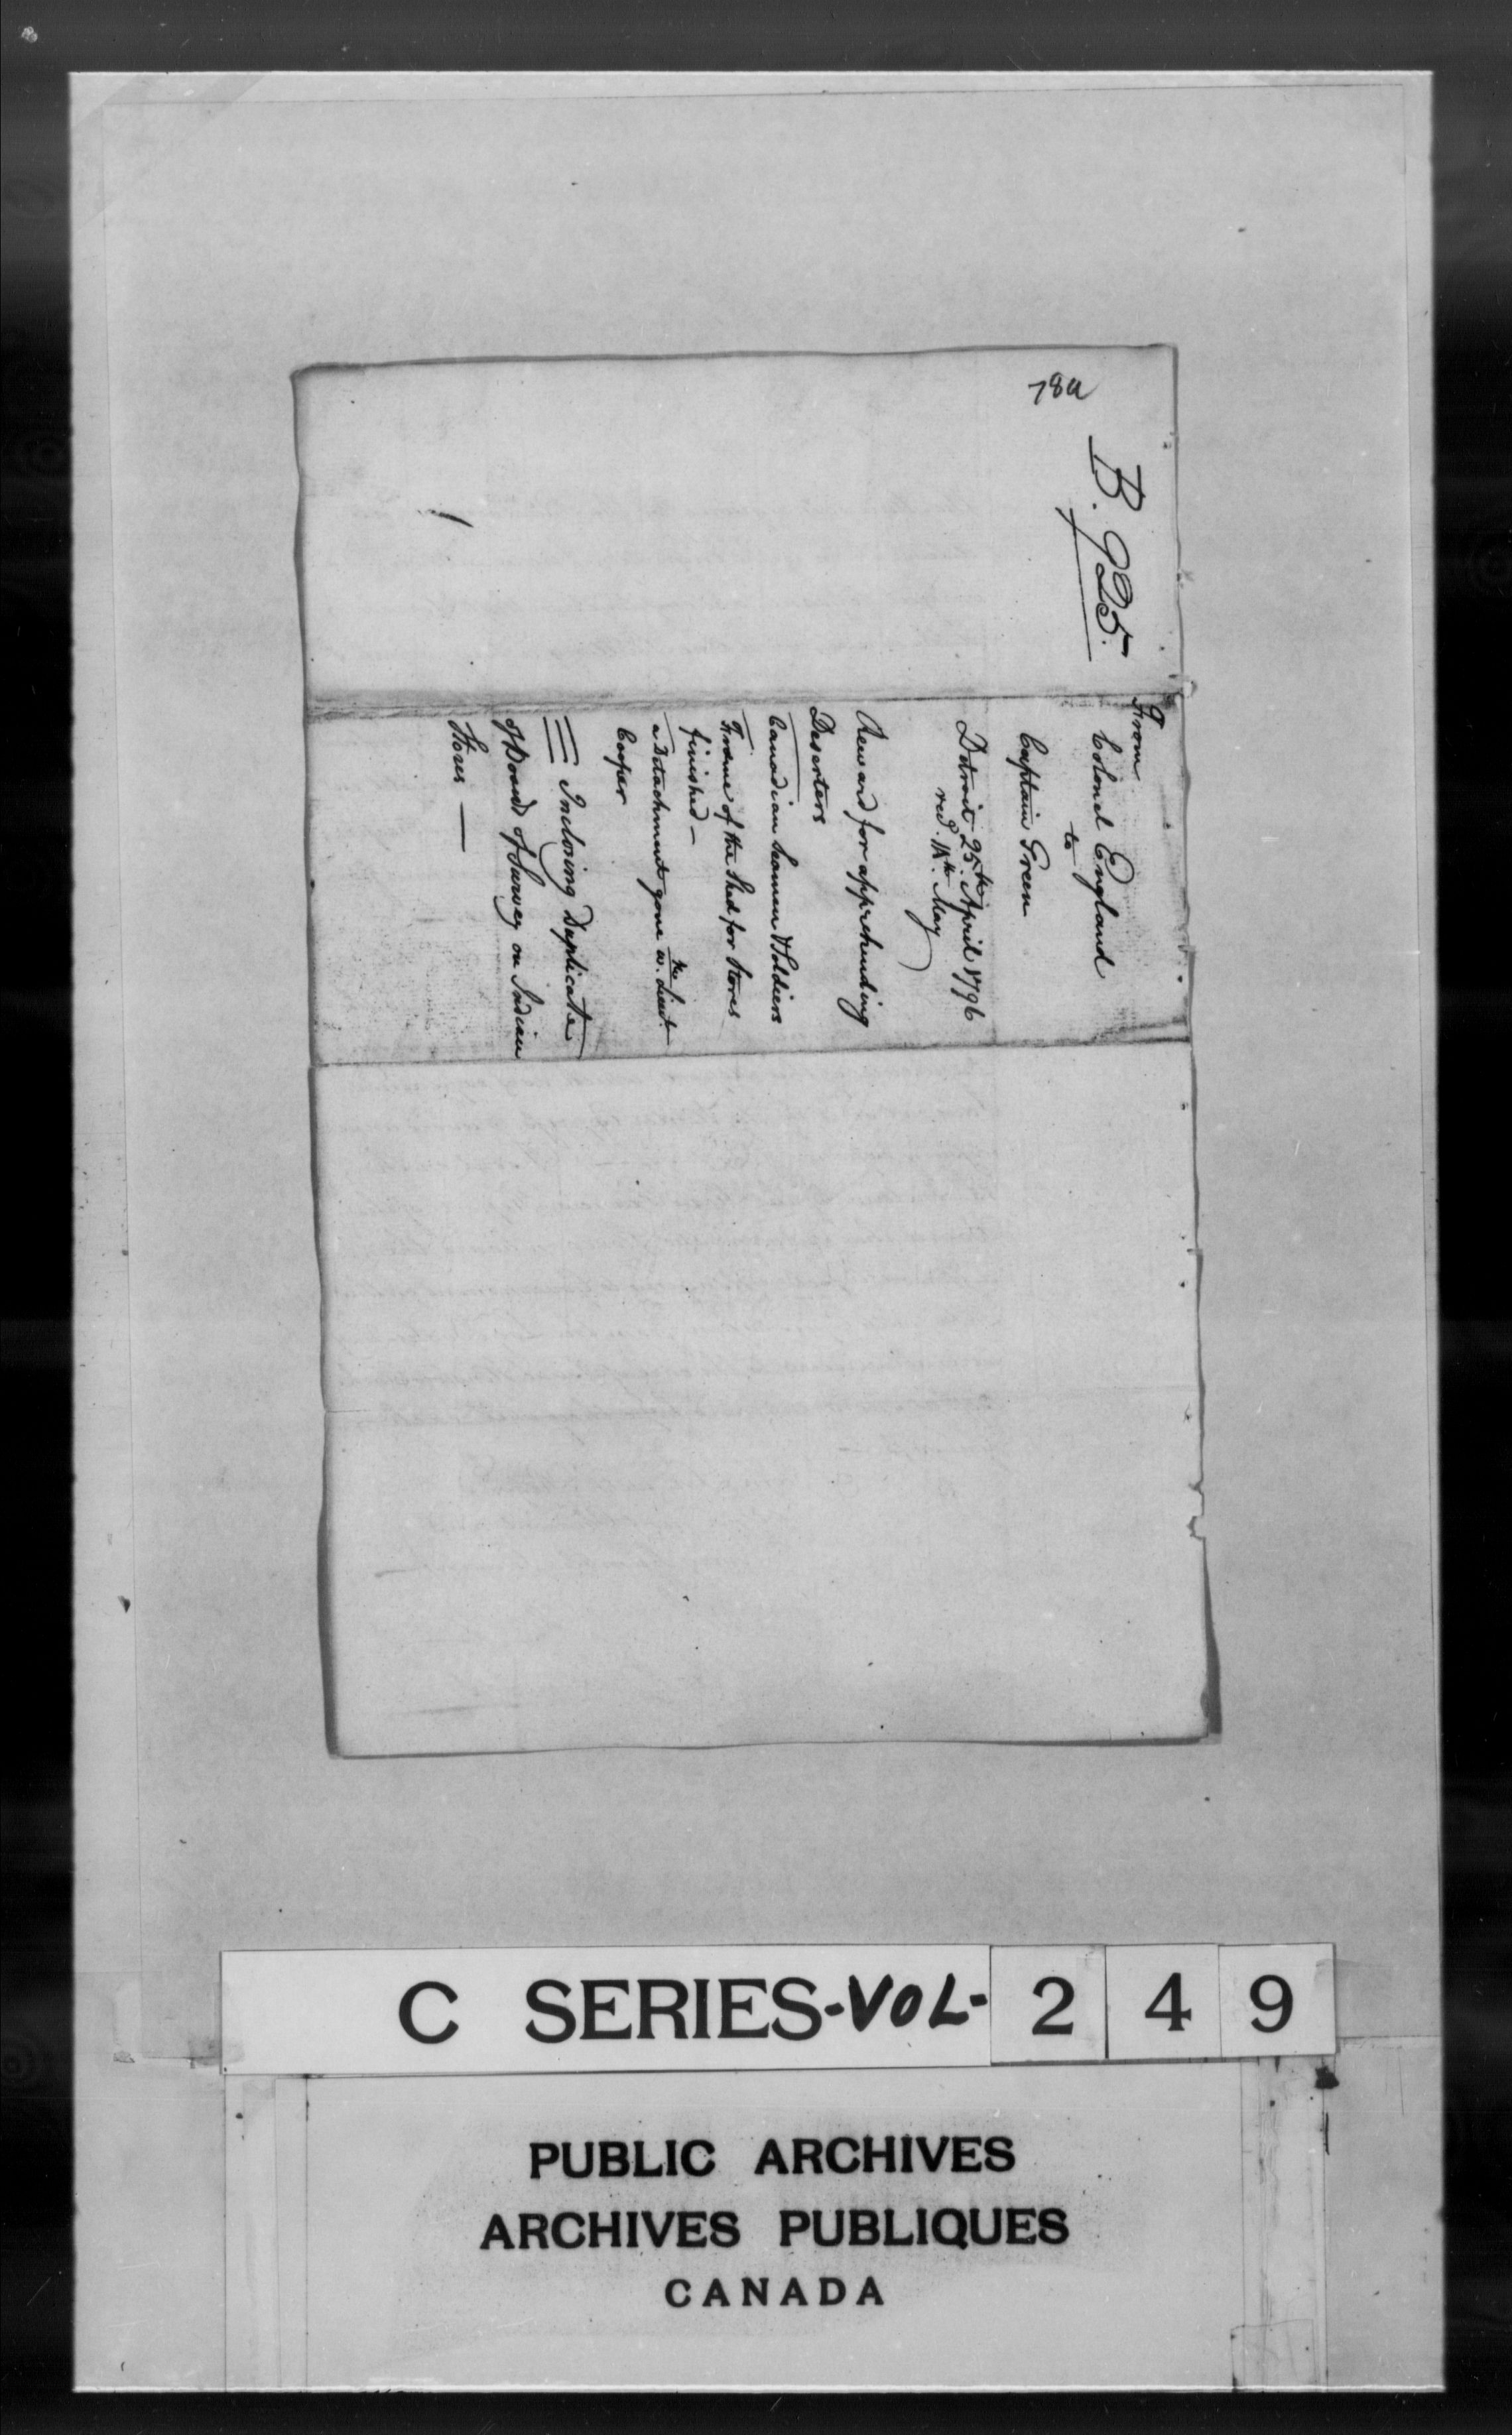 78a
B. 925.
From
Colonel England
to
Captain Green
Detroit 25th. April 1796
recd. 14th. May
Reward for apprehending
Deserters
Canadian Seamen & Soldiers
Frame of the Shed for Stores
finished —
a Detachment gone wth. Lieut.
Cooper
Inclosing Duplicate
of Board of Survey on Indian
Stores —
C SERIES-VOL- 2 4 9
PUBLIC ARCHIVES
ARCHIVES PUBLIQUES
CANADA